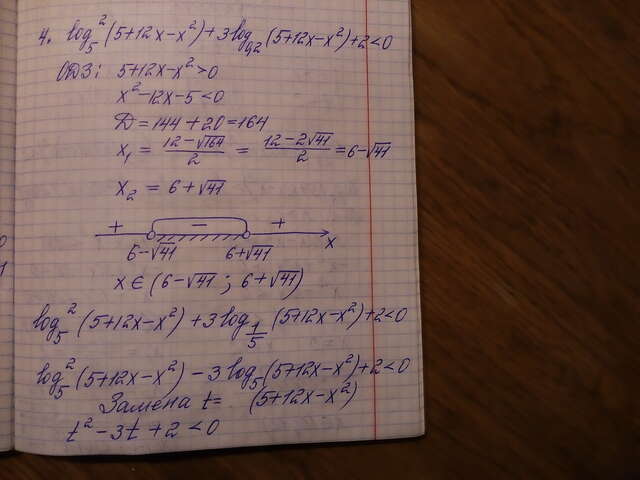 4. log₅²(5+12x−x²)+3log₀,₂(5+12x−x²)+2<0
ОДЗ: 5+12x−x²>0
x²−12x−5<0
D=144+20=164
x₁ = (12−√164)/2 = (12−2√41)/2 = 6−√41
x₂ = 6+√41
+ − +
6−√41 6+√41 x
x∈(6−√41 ; 6+√41)
log₅²(5+12x−x²)+3log_{1/5}(5+12x−x²)+2<0
log₅²(5+12x−x²)−3log₅(5+12x−x²)+2<0
Замена t= (5+12x−x²)
t²−3t+2<0